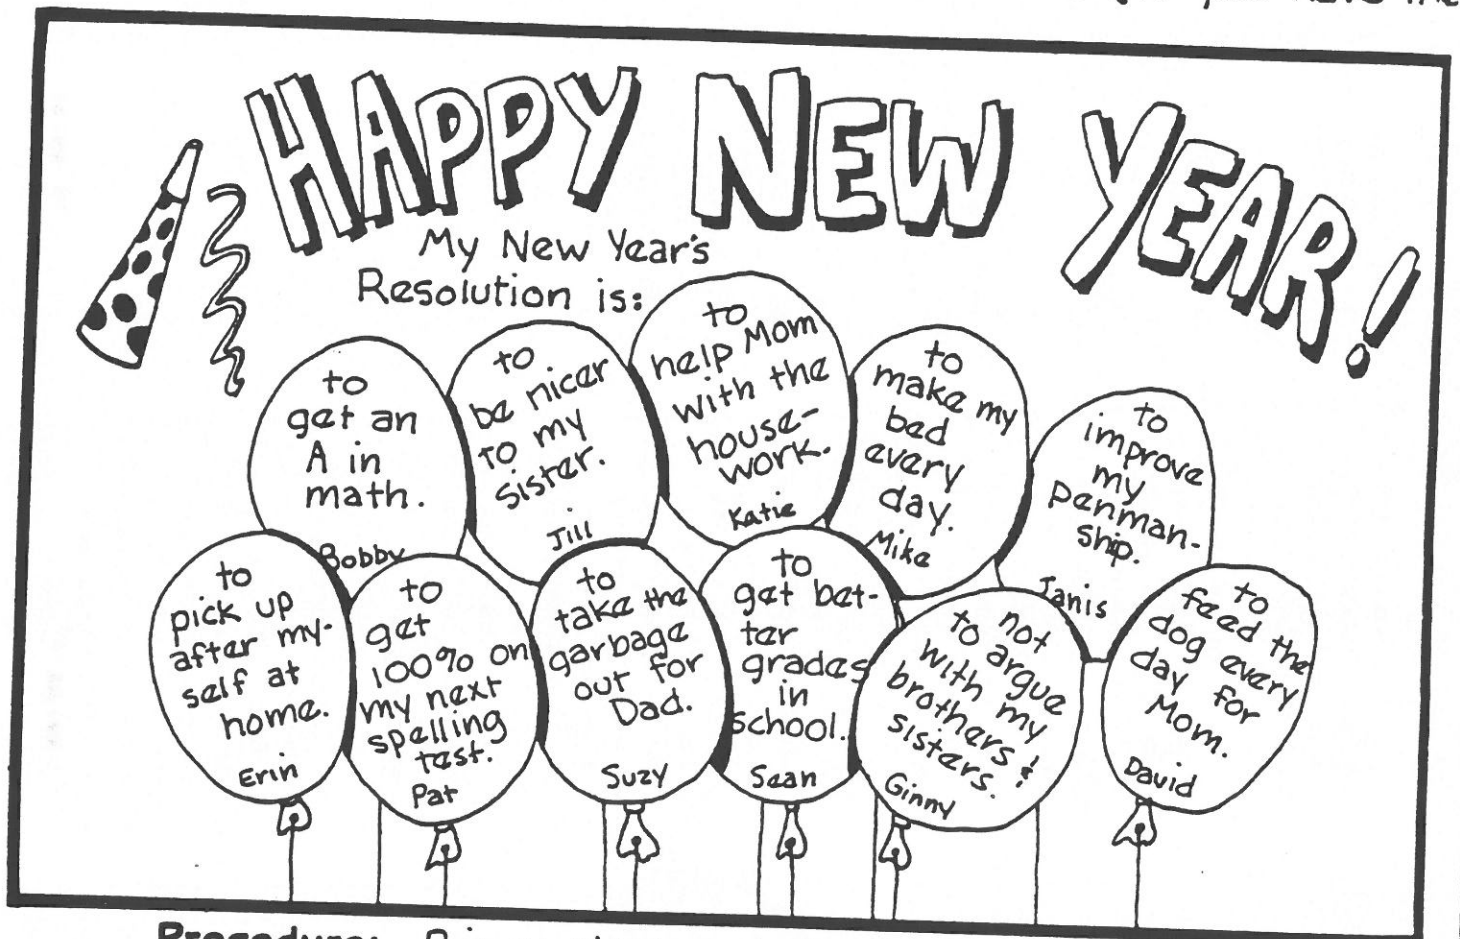 HAPPY NEW YEAR!
My New Year's
Resolution is:
to
get an
A in
math.
Bobby
to
be nicer
to my
sister.
Jill
to
help Mom
with the
house-
work.
Katie
to
make my
bed
every
day.
Mike
to
improve
my
penman-
ship.
Janis
to
pick up
after my-
self at
home.
Erin
to
get
100% on
my next
spelling
test.
Pat
to
take the
garbage
out for
Dad.
Suzy
to
get bet-
ter
grades
in
school.
Sean
not
to argue
with my
brothers &
sisters.
Ginny
to
feed the
dog every
day for
Mom.
David
Procedure: